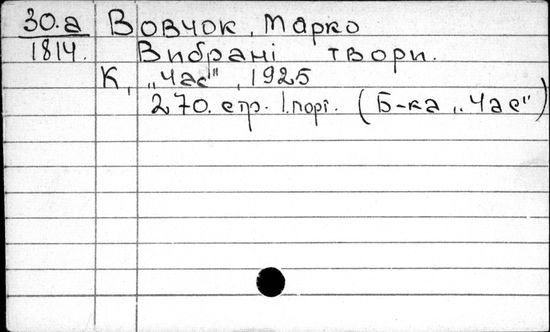 30.а Вовчок, Марко
1814. Вибрані твори.
К, „Час", 1925
270. стр. 1.порт. (Б-ка „Час")